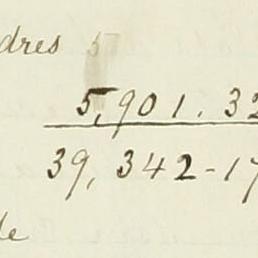 dres 5
5,901.32
39,342-17
de